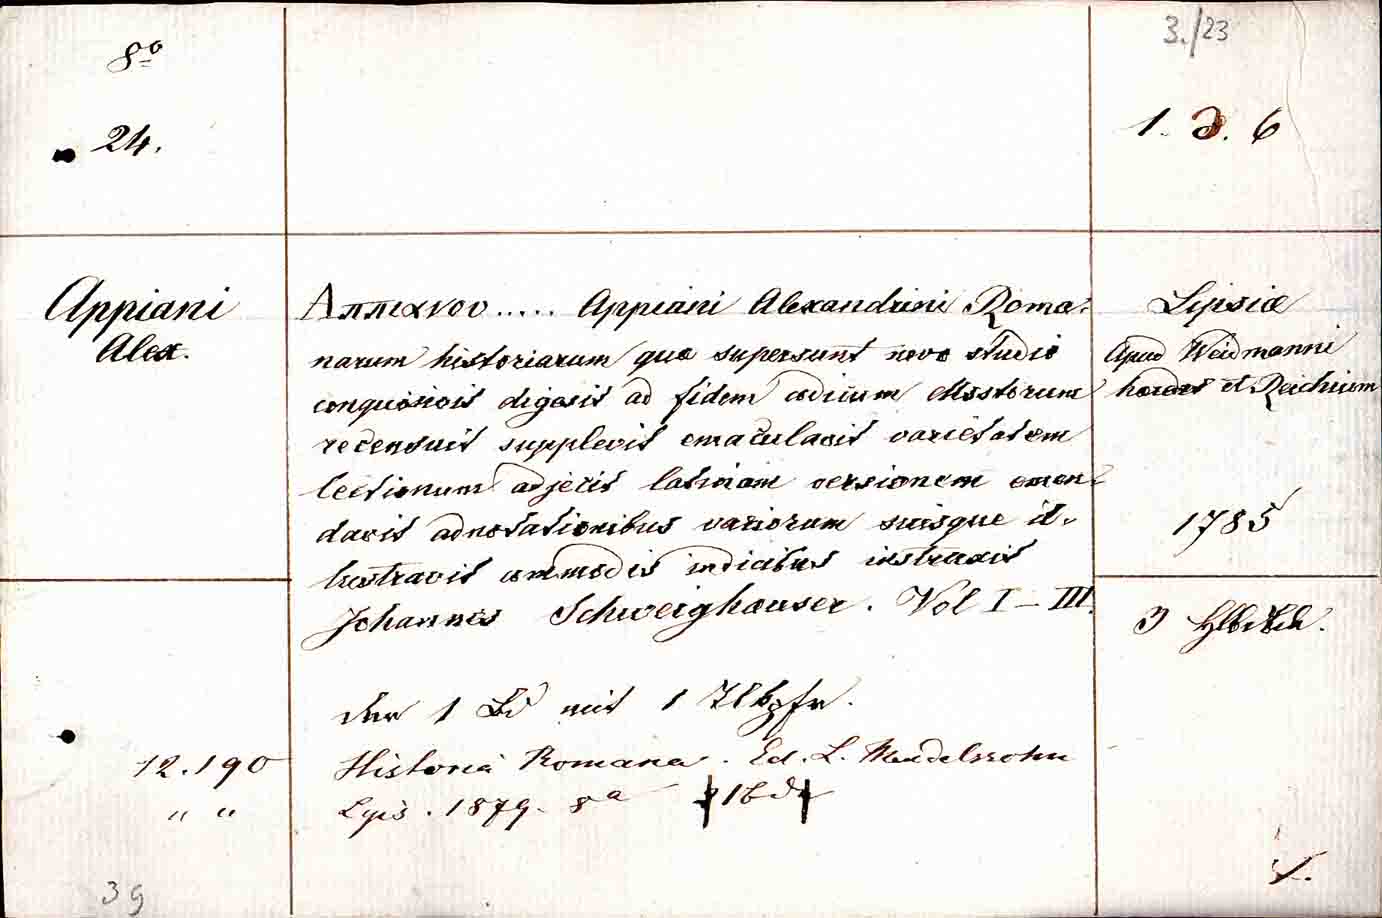 8º
24.
3./23
1. d. 6
Appiani
Alex.
Αππιανου ..... Appiani Alexandrini Roma-
narum historiarum quae supersunt novo studio
conquisivit digessit ad fidem codicum Msstorum
recensuit supplevit emaculavit varietatem
lectionum adjecit latinam versionem emen-
davit adnotationibus variorum suisque il-
lustravit commodis indicibus instruxit
Johannes Schweighäuser. Vol I – III.
der 1 Bd mit 1 Tlkpfr.
Lipsiae
apud Weidmanni
et Reichium
1785
3 Hlbfrbde.
12.190
Historia Romana. Ed. L. Mendelssohn
" "
Lpis. 1879. 8º 1bd
39